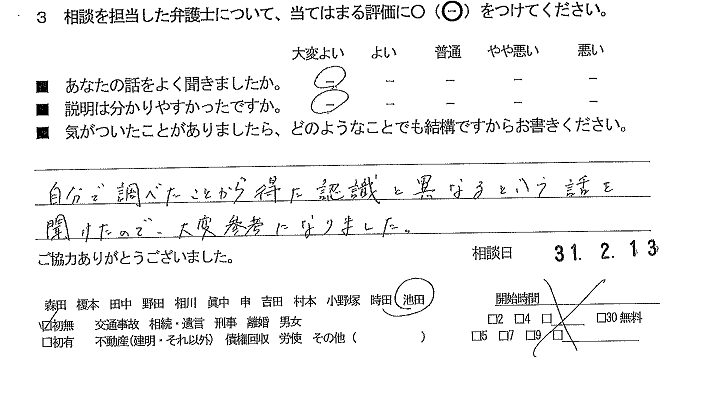 3 相談を担当した弁護士について、当てはまる評価に○(⊖)をつけてください。
大変よい よい 普通 やや悪い 悪い
■ あなたの話をよく聞きましたか。 － － － － －
■ 説明は分かりやすかったですか。 － － － － －
■ 気がついたことがありましたら、どのようなことでも結構ですからお書きください。
自分で調べたことから得た認識と異なるという話を
聞けたので、大変参考になりました。
ご協力ありがとうございました。 相談日 31. 2. 13
森田 榎本 田中 野田 相川 眞中 申 吉田 村本 小野塚 時田 池田 開始時間
☑初無 交通事故 相続・遺言 刑事 離婚 男女 □2 □4 □ □30無料
□初有 不動産(建明・それ以外) 債権回収 労使 その他( ) □5 □7 □9 □